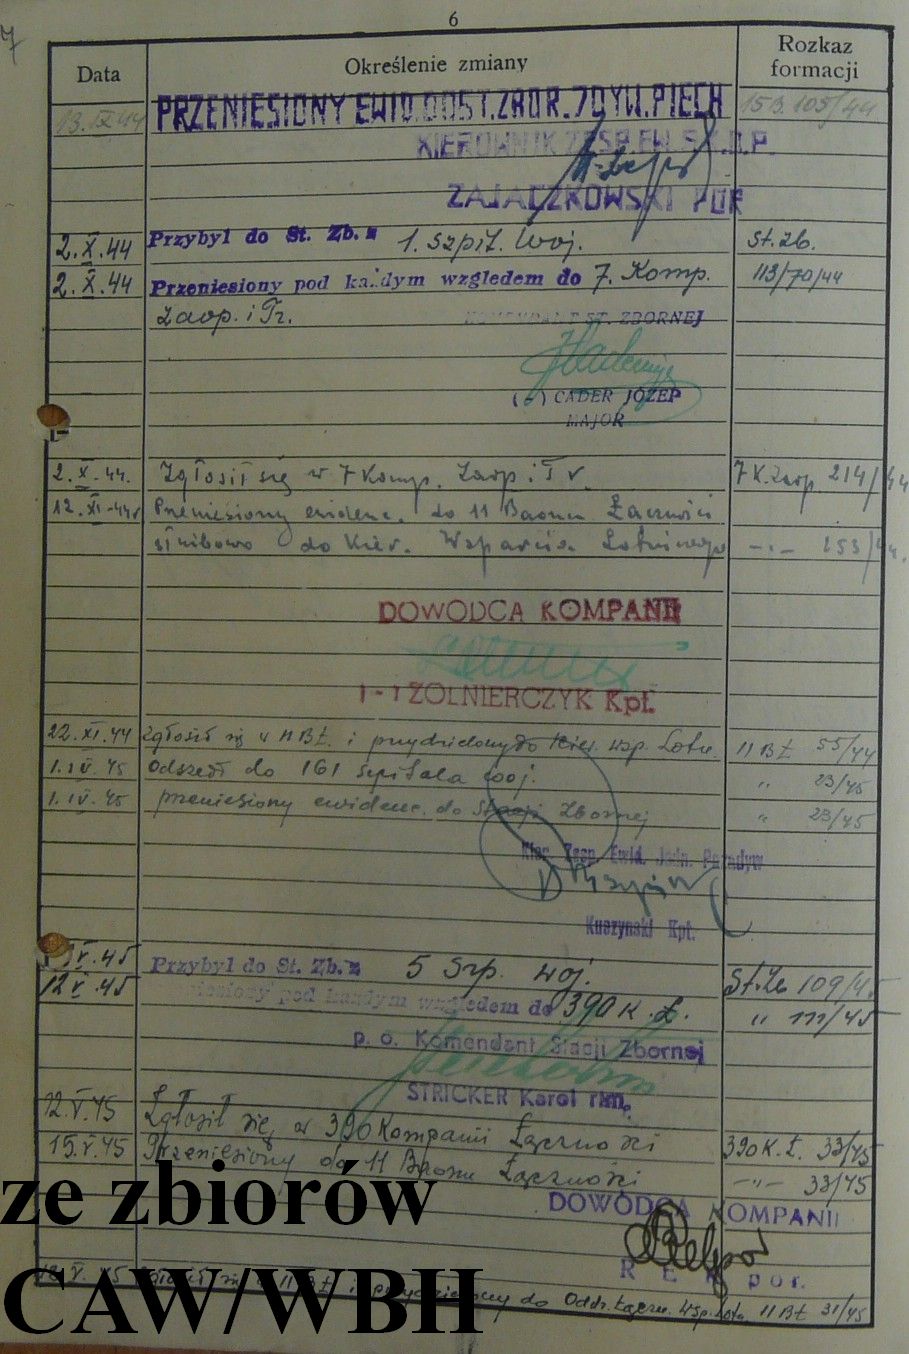 7
6
Data Określenie zmiany Rozkaz formacji
13.IX 44 PRZENIESIONY EWID. DO ST. ZBOR. 7 DYW. PIECH 105/44
KIEROWNIK ZESP. EW.
ZAJĄCZKOWSKI POR
2.X.44 Przybył do St. Zb. z 1. szpit. Woj. St. Zb.
2.X.44 Przeniesiony pod każdym względem do 7. Komp. 113/70/44
Zaop. i Tr.
KOMENDANT ST. ZBORNEJ
(-) CADER JÓZEF
MAJOR
2.X.44. Zgłosił się w 7 Komp. Zaop. i Tr. 7 K. Zaop 214/44
12.XI-44 Przeniesiony ewidenc. do 11 Baonu Łączności
służbowo do Kier. Wsparcia Lotniczego -"- 253/44.
DOWÓDCA KOMPANII
(-) ŻOŁNIERCZYK Kpt.
22.XI.44 Zgłosił się w 11 BŁ. i przydzielony do Kier. wsp. Lotn. 11 BŁ 55/44
1.IV.45 Odszedł do 161 szpitala woj. " 23/45
1.IV.45 przeniesiony ewidenc. do Stacji Zbornej " 23/45
Kier. Zesp. Ewid. Jedn.
Kuczynski Kpt.
V.45 Przybył do St. Zb. z 5 Szp. woj. St. Zb 109/45
12 V.45 pod każdym względem do 390 K. Ł. " 111/45
p. o. Komendant Stacji Zbornej
STRICKER Karol rtm.
12.V.45 Zgłosił się w 390 Kompanii Łączności 390 K. Ł. 33/45
15.V.45 Przeniesiony do 11 Baonu Łączności -"- 33/45
DOWÓDCA KOMPANII
por.
V.45 Zgłosił się w 11 BŁ i przydzielony do Oddz. Łączn. Wsp. Lotn. 11 BŁ 31/45
ze zbiorów
CAW/WBH